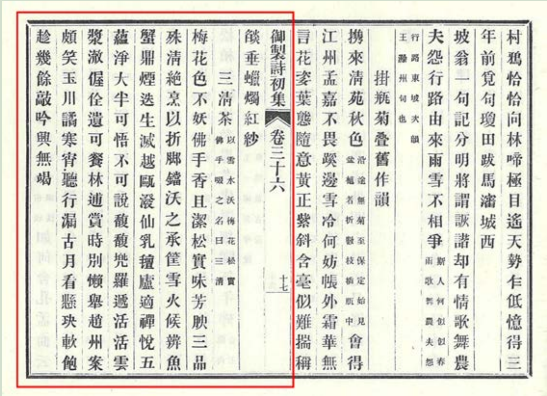 村鴉恰恰向林啼極目遙天勢乍低憶得三
年前覓句瓊田跋馬潞城西
坡翁一句記分明將謂詼諸却有情歌舞農
夫怨行路由來雨雪不相爭斯人何似似春雨歌舞農夫怨
行路東坡次韻王滁州句也
掛瓶菊疊舊作韻
攜來清苑秋色沿途無菊至保定始見盆植名折數枝攜瓶中會得
江州孟嘉不畏蹊邊雪冷何妨帳外霜華無
言花妥葉態隨意黃正紫斜含毫似難揣稱
御製詩初集 卷三十六 十七
燄垂蠟燭紅紗
三清茶以雪水沃梅花松實佛手啜之名曰三清
梅花色不妖佛手香且潔松實味芳腴三品
殊清絕烹以折腳鐺沃之承筐雪火候辨魚
蟹鼎煙迭生滅越甌潑仙乳氊廬適禪悅五
蘊淨大半可悟不可說馥馥兠羅遞活活雲
漿澈偓佺遺可餐林逋賞時別懶舉趙州案
頗笑玉川譎寒宵聽行漏古月看懸玦軟飽
趁幾餘敲吟興無竭